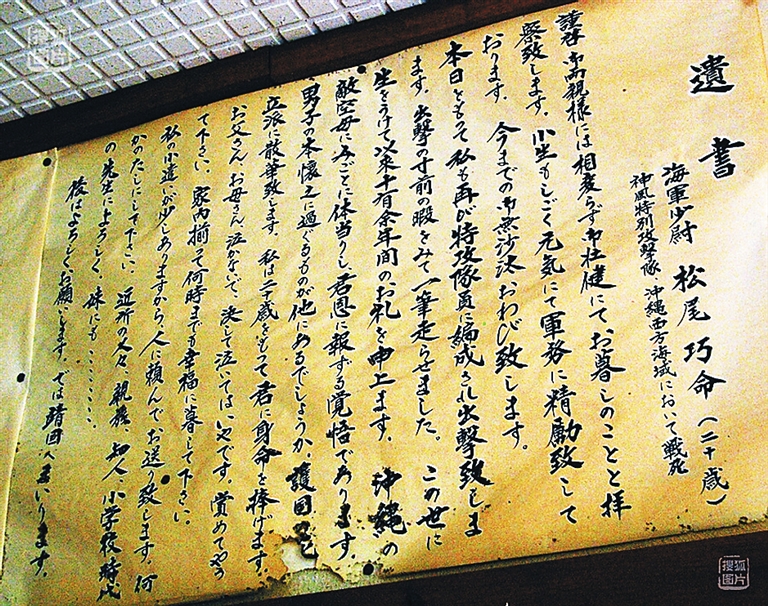 遺書
海軍少尉 松尾巧命(二十歳)
神風特別攻撃隊 沖縄西方海域において戦死
謹啓 御両親様には相変らず御壮健にてお暮しのことと拝
察致します。小生もしごく元気にて軍務に精励致して
おります。今までの御無沙汰おわび致します。
本日をもって私も再び特攻隊員に編成され出撃致しま
す。出撃の寸前の暇をみて一筆走らせました。この世に
生をうけて以来十有余年間のお礼を申上ます。沖縄の
敵空母にみごとに体当りし君恩に報ずる覚悟であります。
男子の本懐之に過ぐるものが他にあるでしょうか。護国の
立派に散華致します。私は二十歳をもって君に身命を捧げます。
お父さん、お母さん泣かないで、決して泣いてはいやです。賞めてやっ
て下さい。家内揃って何時までも幸福に暮して下さい。
私の小遣いが少しありますから、人に頼んでお送り致します。何
かのたしにして下さい。近所の人々、親族、知人、小学校時代
の先生によろしく、妹にも………。
後はよろしくお願いします。では靖国へまいります
搜狐
图片
搜狐
图片